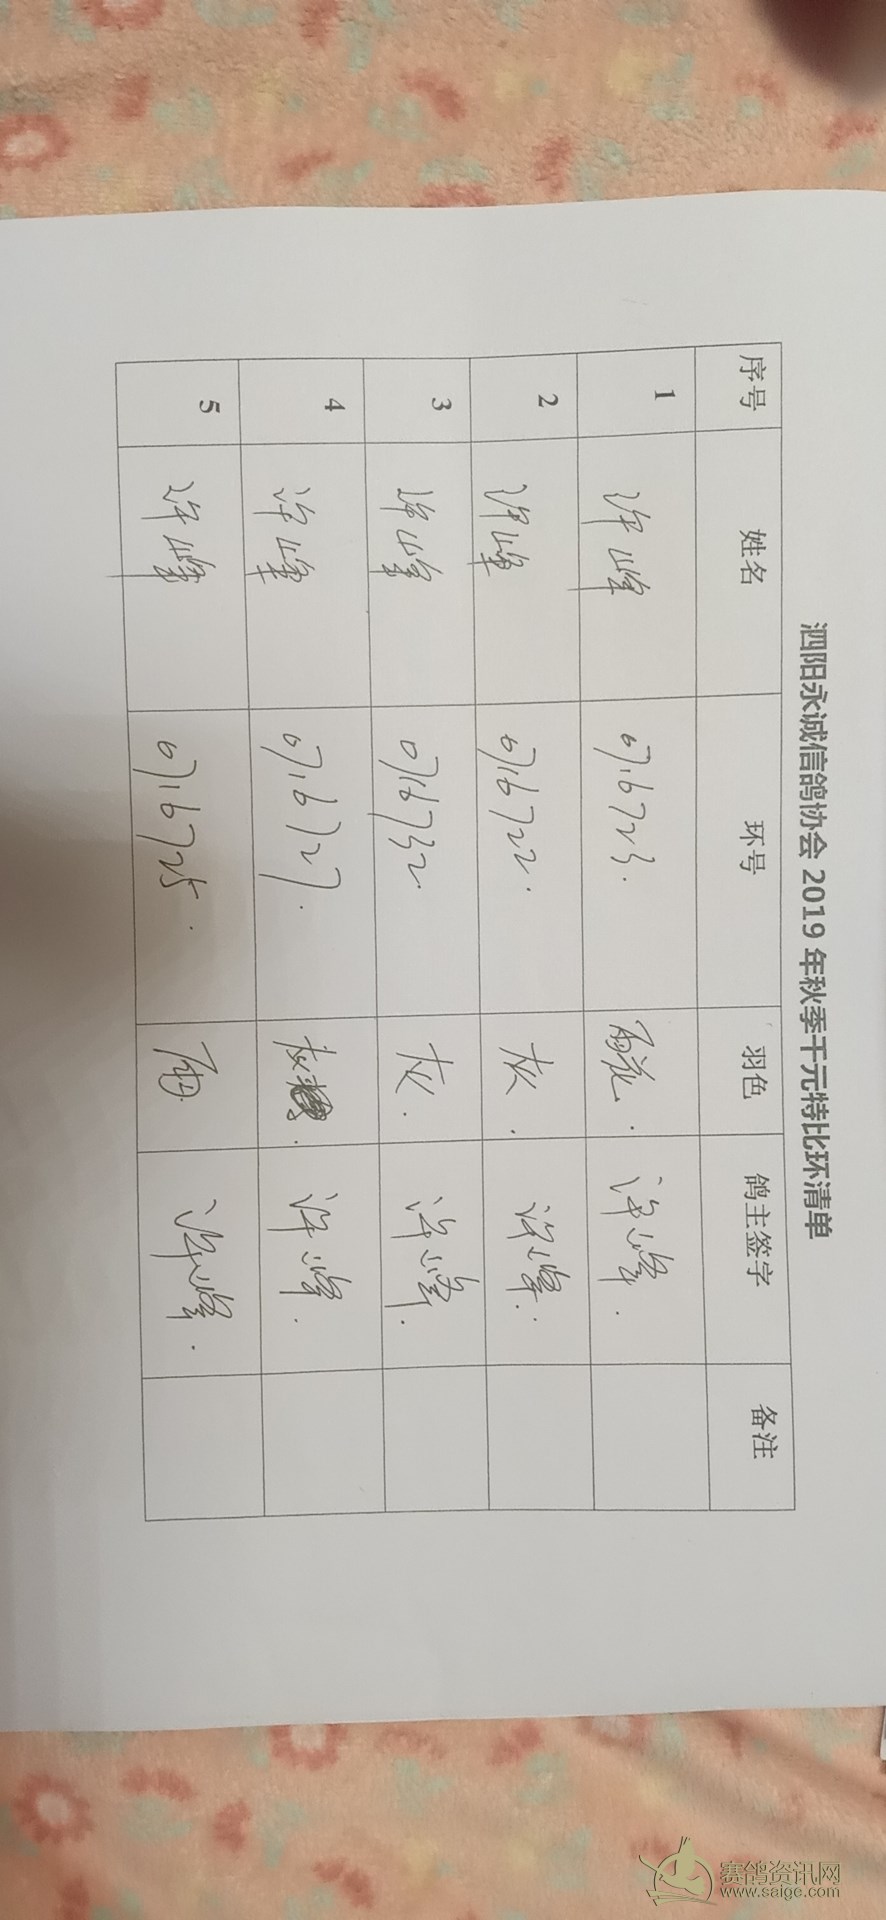 泗阳永诚信鸽协会 2019 年秋季千元特比环清单
序号 姓名 环号 羽色 鸽主签字 备注
1 许峰 0716723. 雨花. 许峰.
2 许峰 0716722. 灰. 许峰.
3 许峰 0716732. 灰. 许峰.
4 许峰 0716727. 灰 许峰.
5 许峰 0716725. 雨. 许峰.
赛鸽资讯网
www.saige.com